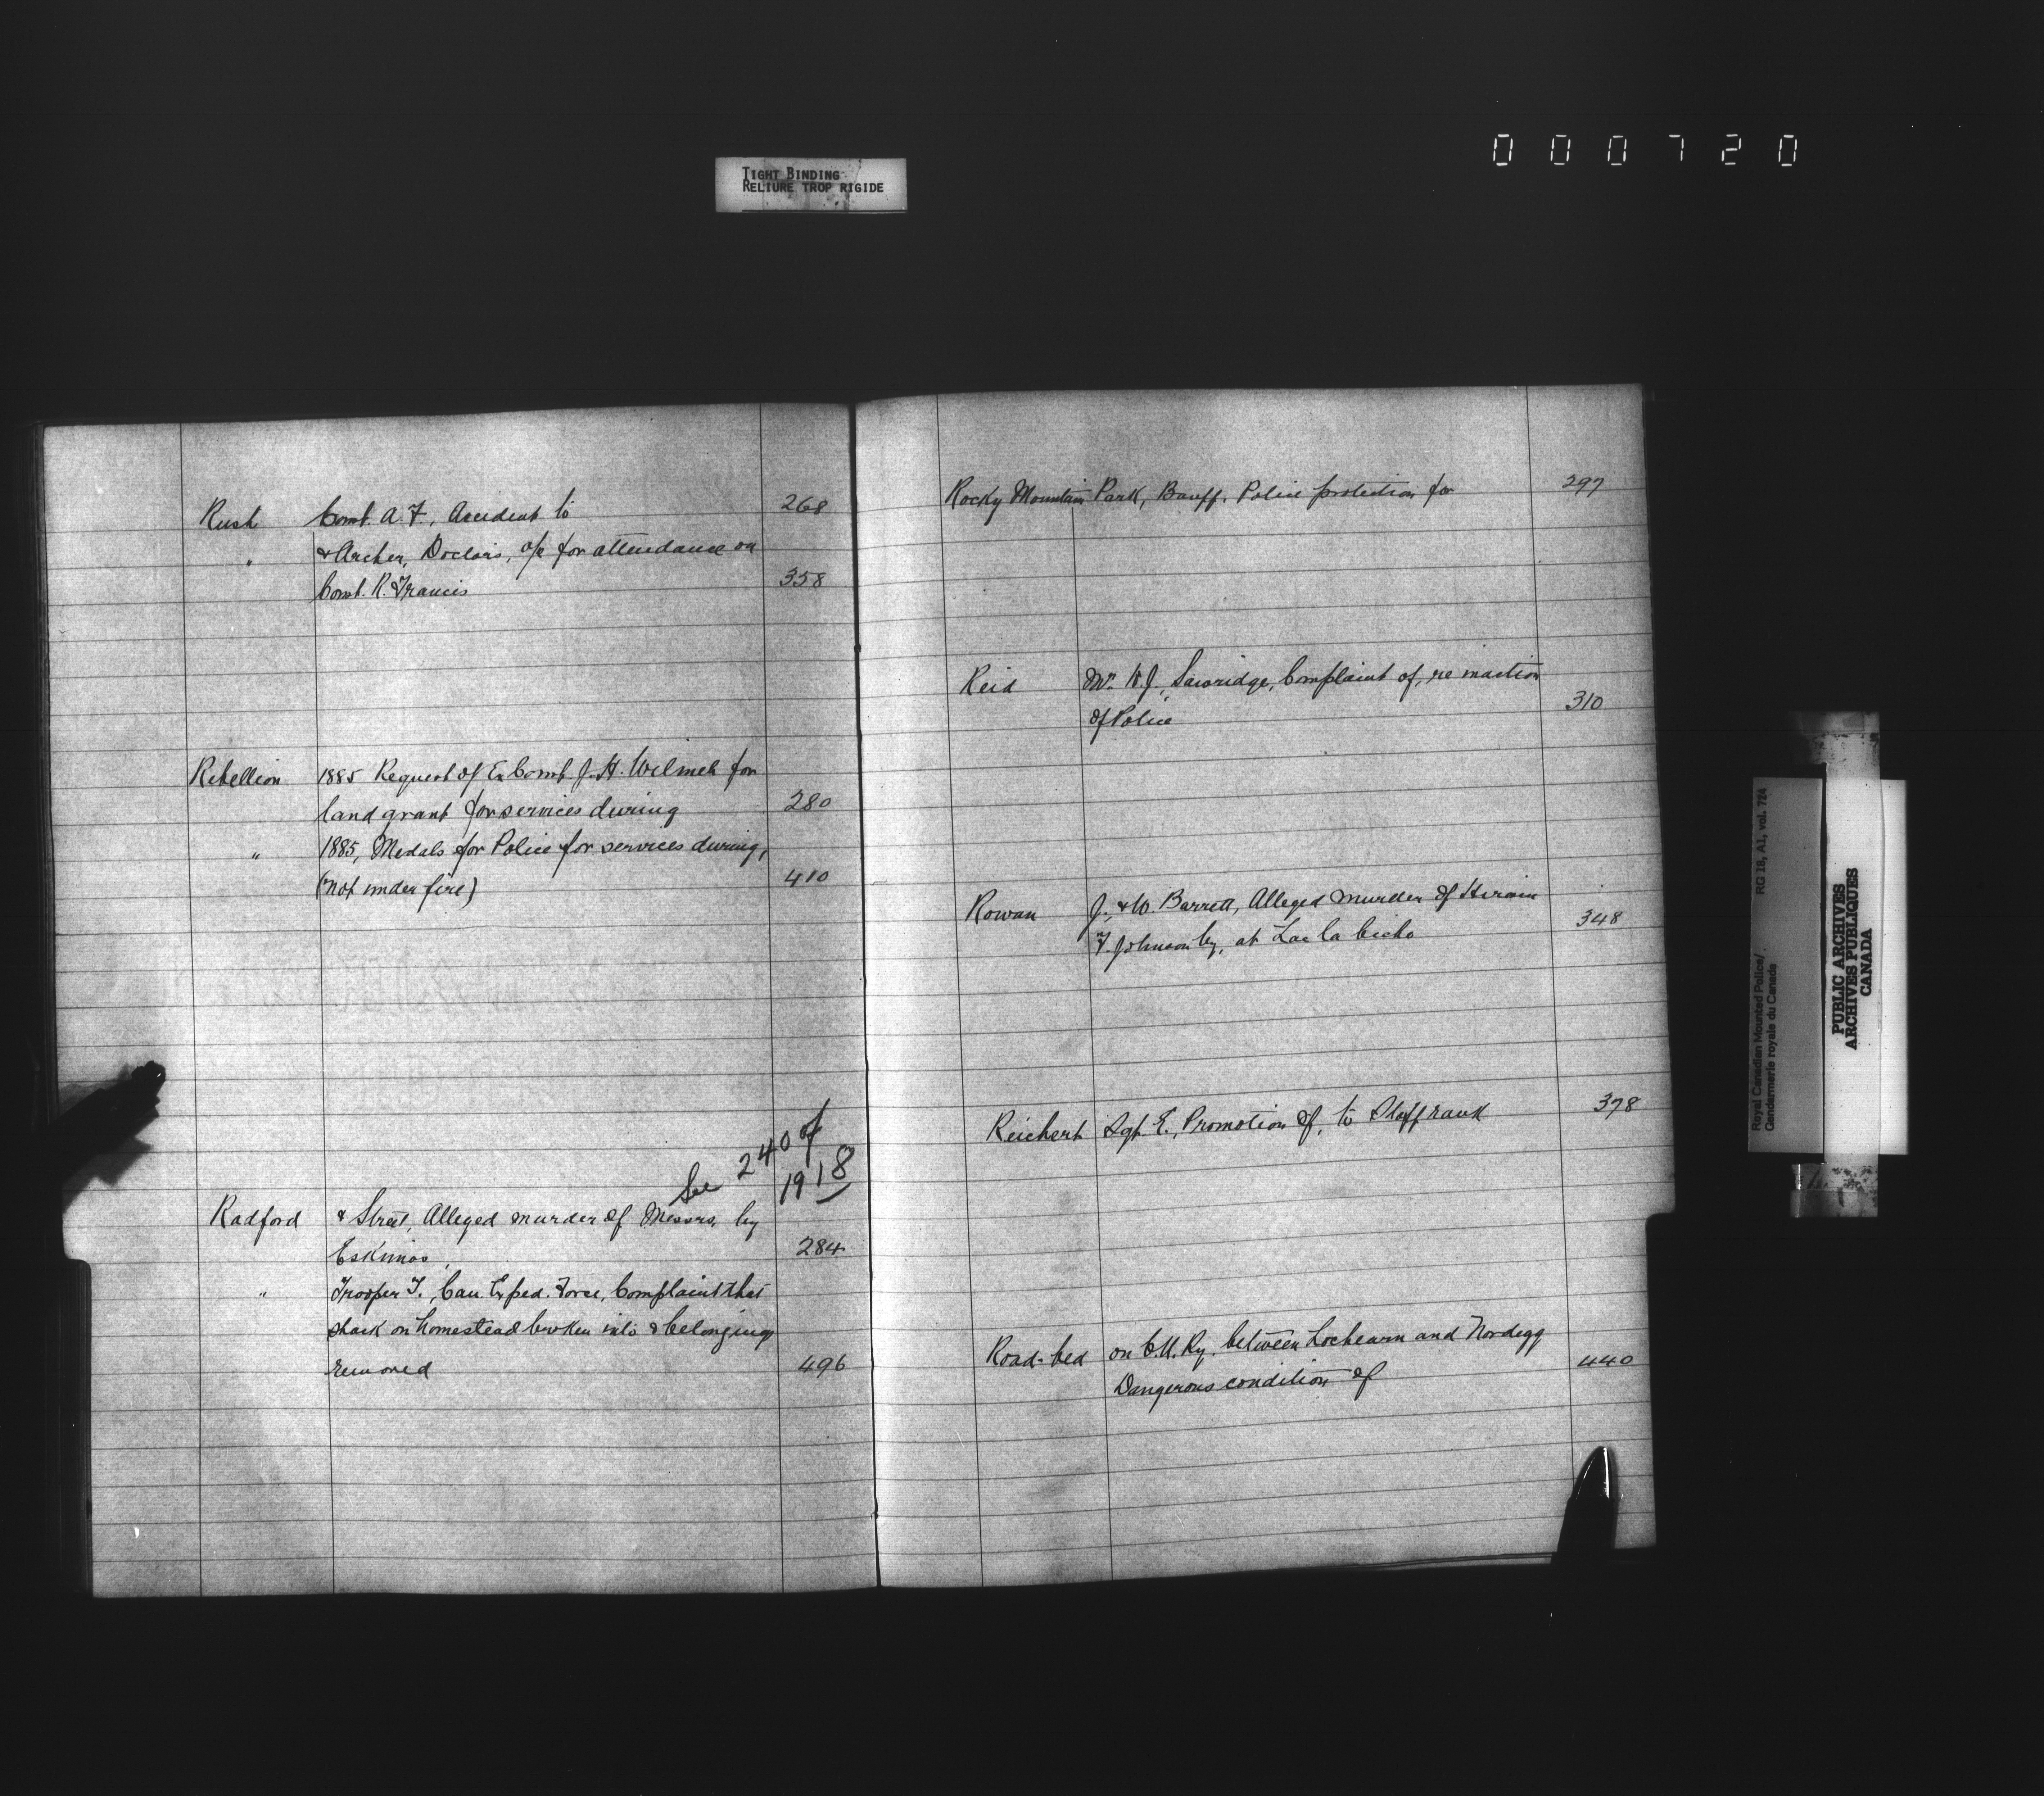 000720
TIGHT BINDING
RELIURE TROP RIGIDE
Rush Const. A. F., Accident to 268
" & Archer, Doctors, a/c for attendance on
Const. R. Francis 358
Rebellion 1885 Request of Ex Const. J. H. Wilmet for
land grant for services during 280
" 1885, Medals for Police for services during,
(not under fire) 410
See 240 of
1918
Radford & Street, Alleged murder of Messrs. by
Eskimos, 284
" Trooper T., Can. Exped. Force, Complaint that
shack on homestead broken into & belongings
removed 496
Rocky Mountain Park, Banff. Police protection for 297
Reid Mr. W. J., Sawridge, Complaint of, re inaction
of Police 310
Rowan J., & W. Barrett, Alleged murder of Hiram
F. Johnson by, at Lac la biche 348
Reichert Sgt. E., Promotion of, to Staff rank 378
Road-bed on C.N. Ry. between Lochearn and Nordegg
Dangerous condition of 440
Royal Canadian Mounted Police/ RG 18, A1, vol. 724
Gendarmerie royale du Canada
PUBLIC ARCHIVES
ARCHIVES PUBLIQUES
CANADA